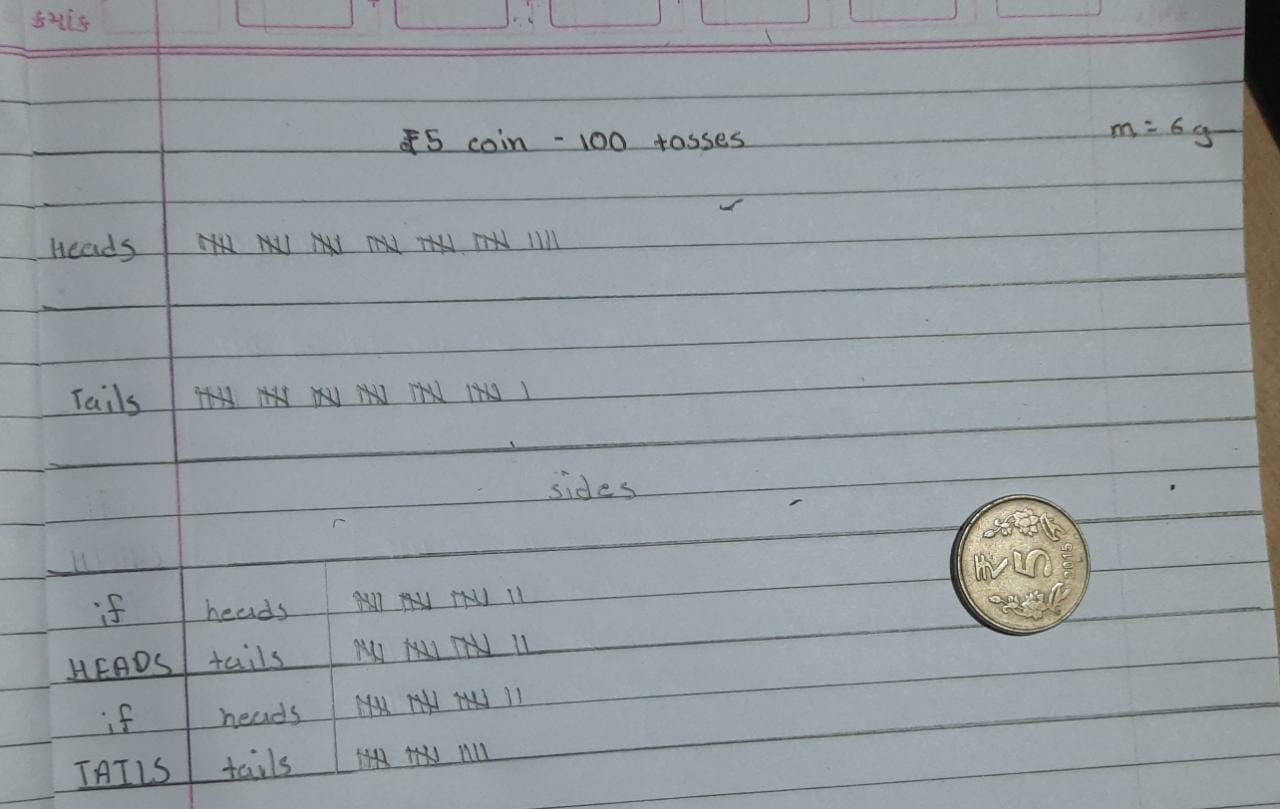 ક્રમાંક
₹5 coin - 100 tosses
m = 6 g
Heads 𝍸 𝍸 𝍸 𝍸 𝍸 𝍸 ||||
Tails 𝍸 𝍸 𝍸 𝍸 𝍸 𝍸 |
sides
if heads 𝍸 𝍸 𝍸 ||
HEADS tails 𝍸 𝍸 𝍸 ||
if heads 𝍸 𝍸 𝍸 ||
TAILS tails 𝍸 𝍸 ||||
₹ 5 2015